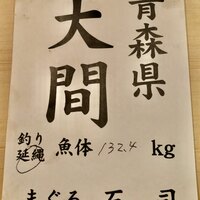 青森県
大間
釣り
延縄
魚体 132.4 kg
まぐろ 石司